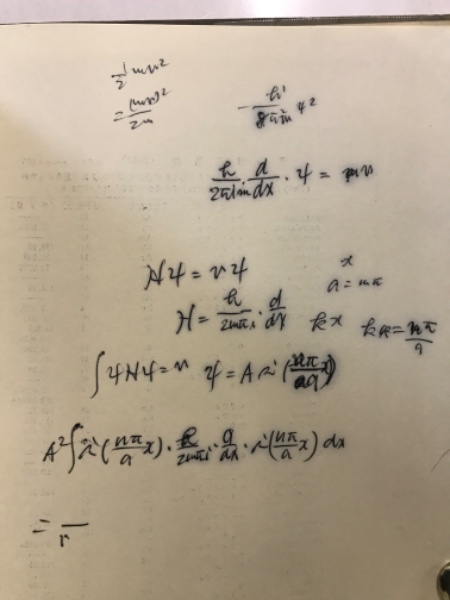 ½mv²
= (mv)²/2m
- h²/8π²m ψ²
h/2πim · d/dx · ψ = mv
Hψ = vψ
x
a = nπ
H = h/2mπi · d/dx
kx
ka = nπ/a
∫ψHψ = v ψ = A sin(nπx/a)
A²∫sin(nπ/a x) · h/2mπi · d/dx · sin(nπ/a x) dx
=